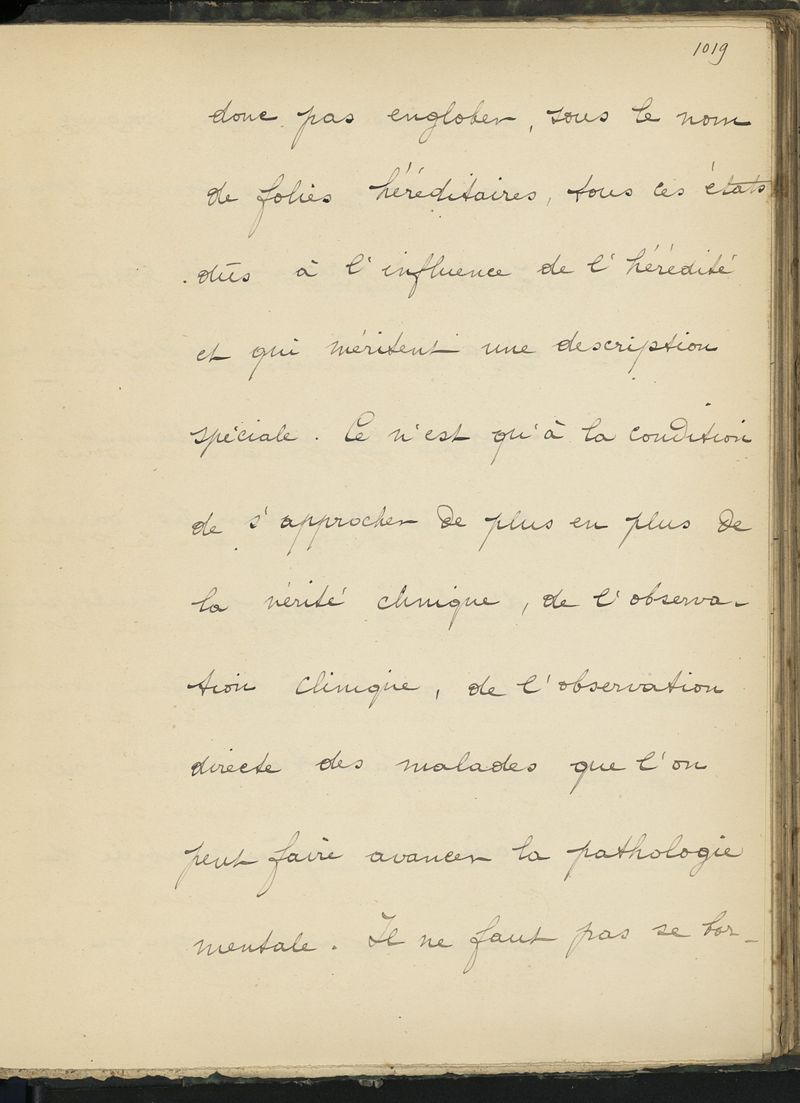 1019
donc pas englober, sous le nom
de folies héréditaires, tous ces états
dûs à l'influence de l'hérédité
et qui méritent une description
spéciale. Ce n'est qu'à la condition
de s'approcher de plus en plus de
la vérité clinique, de l'observa-
tion clinique, de l'observation
directe des malades que l'on
peut faire avancer la pathologie
mentale. Il ne faut pas se bor-